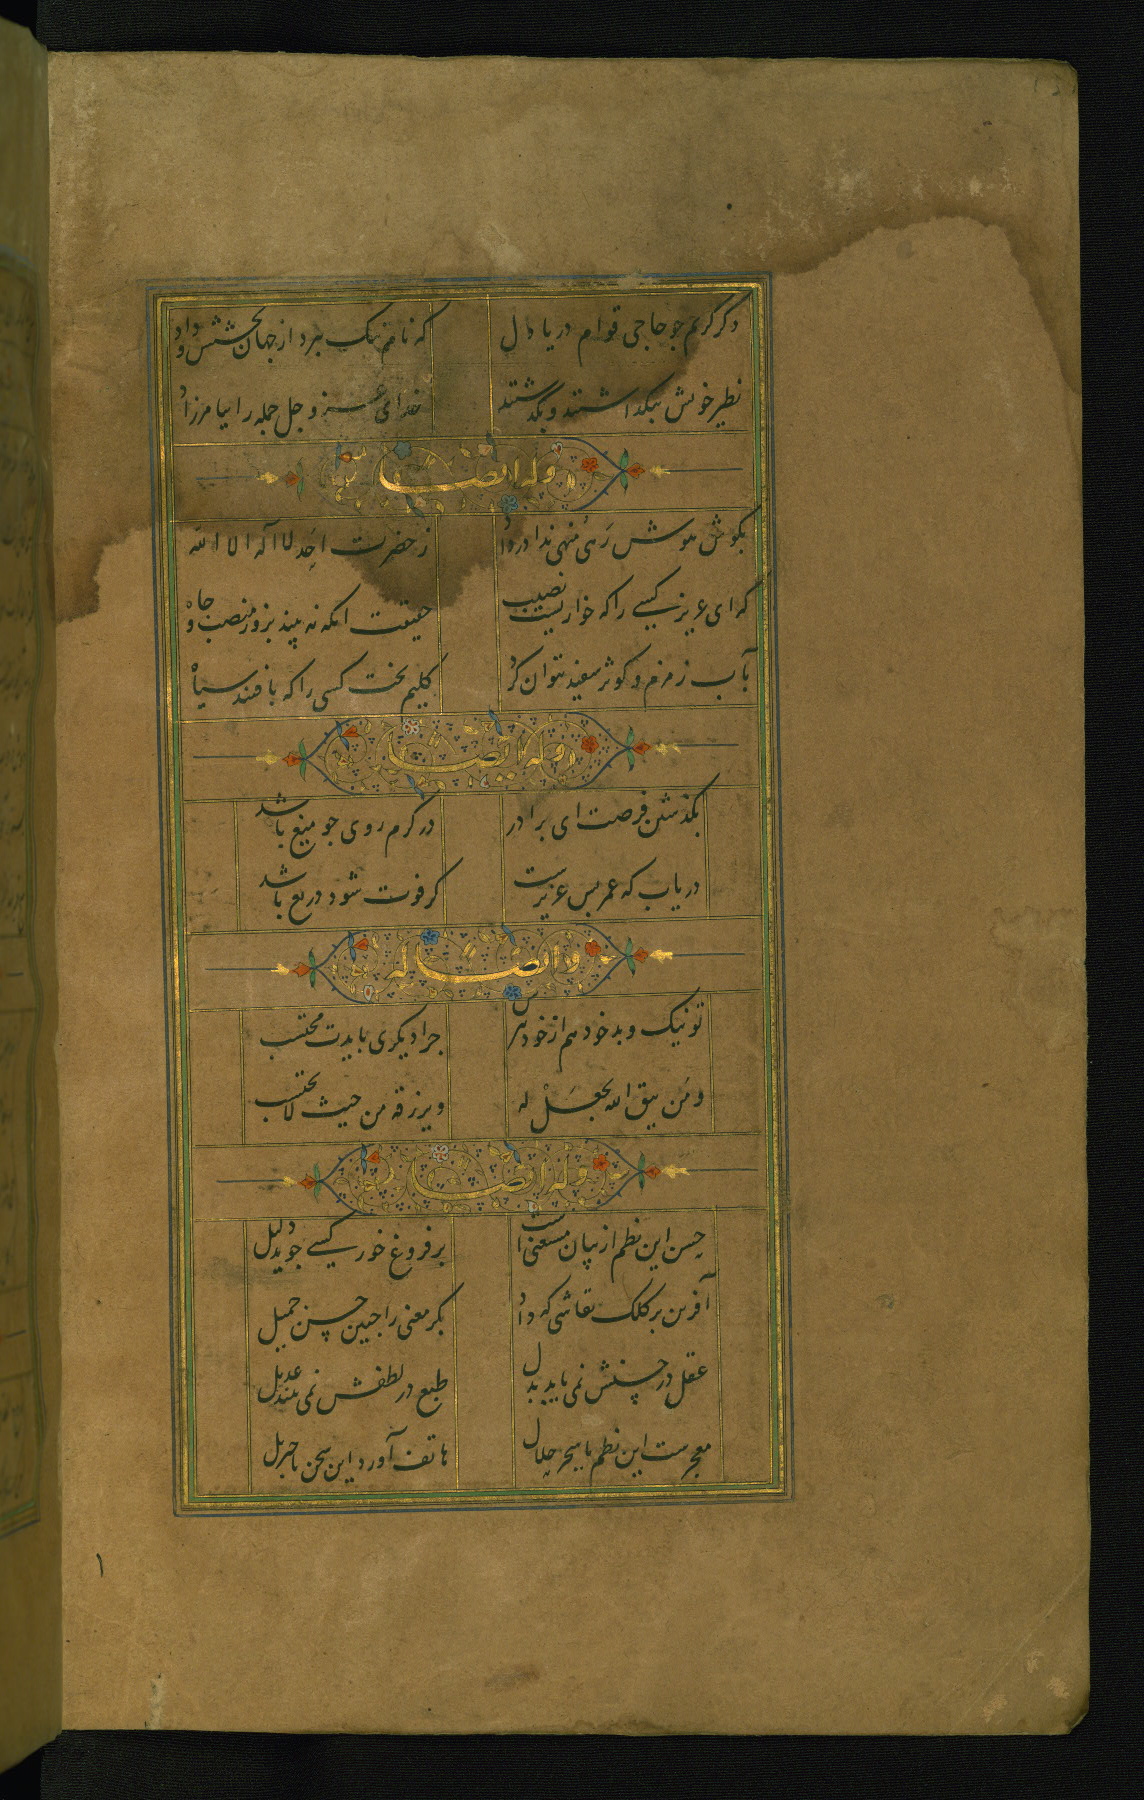 دگر کریم چو حاجی قوام دریا دل که نام نیک ببرد از جهان ببخشش و داد
نظیر خویش بنگذاشتند و بگذشتند خدای عز و جل جمله را بیامرزاد
وله ایضا
بگوش هوش رهی منهی ندا در داد ز حضرت احد لا اله الا الله
که ای عزیز کسی را که خواریست نصیب حقیقت آنکه نه بیند بزور منصب و جاه
بآب زمزم و کوثر سفید نتوان کرد کلیم بخت کسی را که بافتند سیاه
وله ایضا
بگذشتن فرصت ای برادر در گرم روی چو میغ باشد
دریاب که عمر بس عزیزست گر فوت شود دریغ باشد
و ایضا له
تو نیک و بد خود هم از خود بپرس چرا دیگری بایدت محتسب
و من یتق الله یجعل له و یرزقه من حیث لا یحتسب
وله ایضا
حسن این نظم از بیان مستغنی است بر فروغ خور کسی جوید دلیل
آفرین بر کلک نقاشی که داد بکر معنی را چنین حسن جمیل
عقل در حسنش نمی یابد بدل طبع در لطفش نمی بیند عدیل
معجزست این نظم یا سحر حلال هاتف آورد این سخن یا جبریل
۱